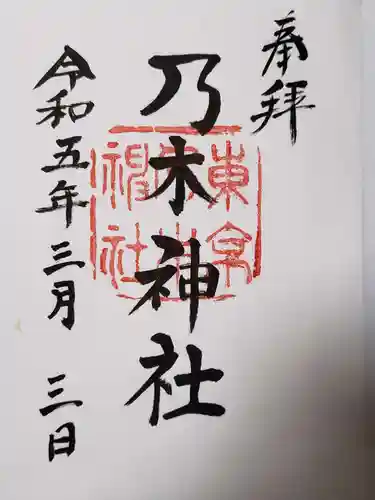 奉拝
乃木神社
令和五年三月三日
東京
乃木
神社